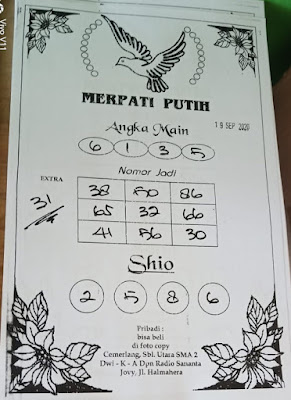 Vivo V11
MERPATI PUTIH
Angka Main
19 SEP 2020
6 1 3 5
Nomor Jadi
EXTRA
31
38 50 86
65 32 66
41 56 30
Shio
2 5 8 6
Pribadi :
bisa beli
di foto copy
Cemerlang, Sbl. Utara SMA 2
Dwi - K - A Dpn Radio Sananta
Jovy, Jl. Halmahera